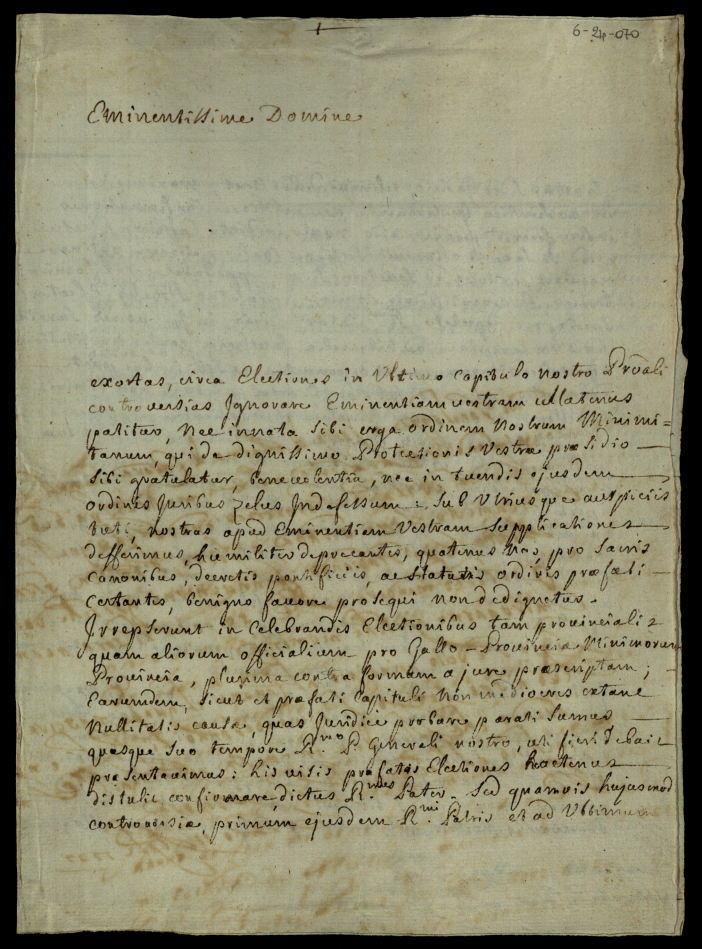 6-24-070
Eminentissime Domine
exortas, circa Electiones in Ultimo capitulo nostro Provāli
controversias Ignorare Eminentiam vestram
patitur, nec innata sibi erga ordinem nostrum Minimi=
tanum, qui de dignissimo Protectionis Vestræ præsidio
sibi gratulatur, benevolentia, nec in tuendis ejusdem
ordines Juribus zelus Indefessum: sub Utriusque auspiciis
tuti, nostras apud Eminentiam Vestram supplicationes
defferimus, humiliter deprecantes, quatenus nos, pro sacris
canonibus, decretis pontificiis, ac statutis ordinis præfati
certantes, benigno favore prosequi non dedignetur.
Irrepserunt in celebrandis Electionibus tam provincialis
quam aliorum officialium pro Gallo-Provincia Minimorum
Provincia, plurima contra formam a jure præscriptam;
Earumdem, sicut et præfati Capituli non mediocres extant
Nullitatis causæ, quas Juridice probare parati sumus
quasque suo tempore R.mo P. Generali nostro, uti fieri debait
præsentavimus: his visis præfatas Electiones hactenus
distulit confirmare dictus R.mus Pater. Sed quamvis hujusmod
controversiæ, primum ejusdem R.mi Patris et ad Ultimum